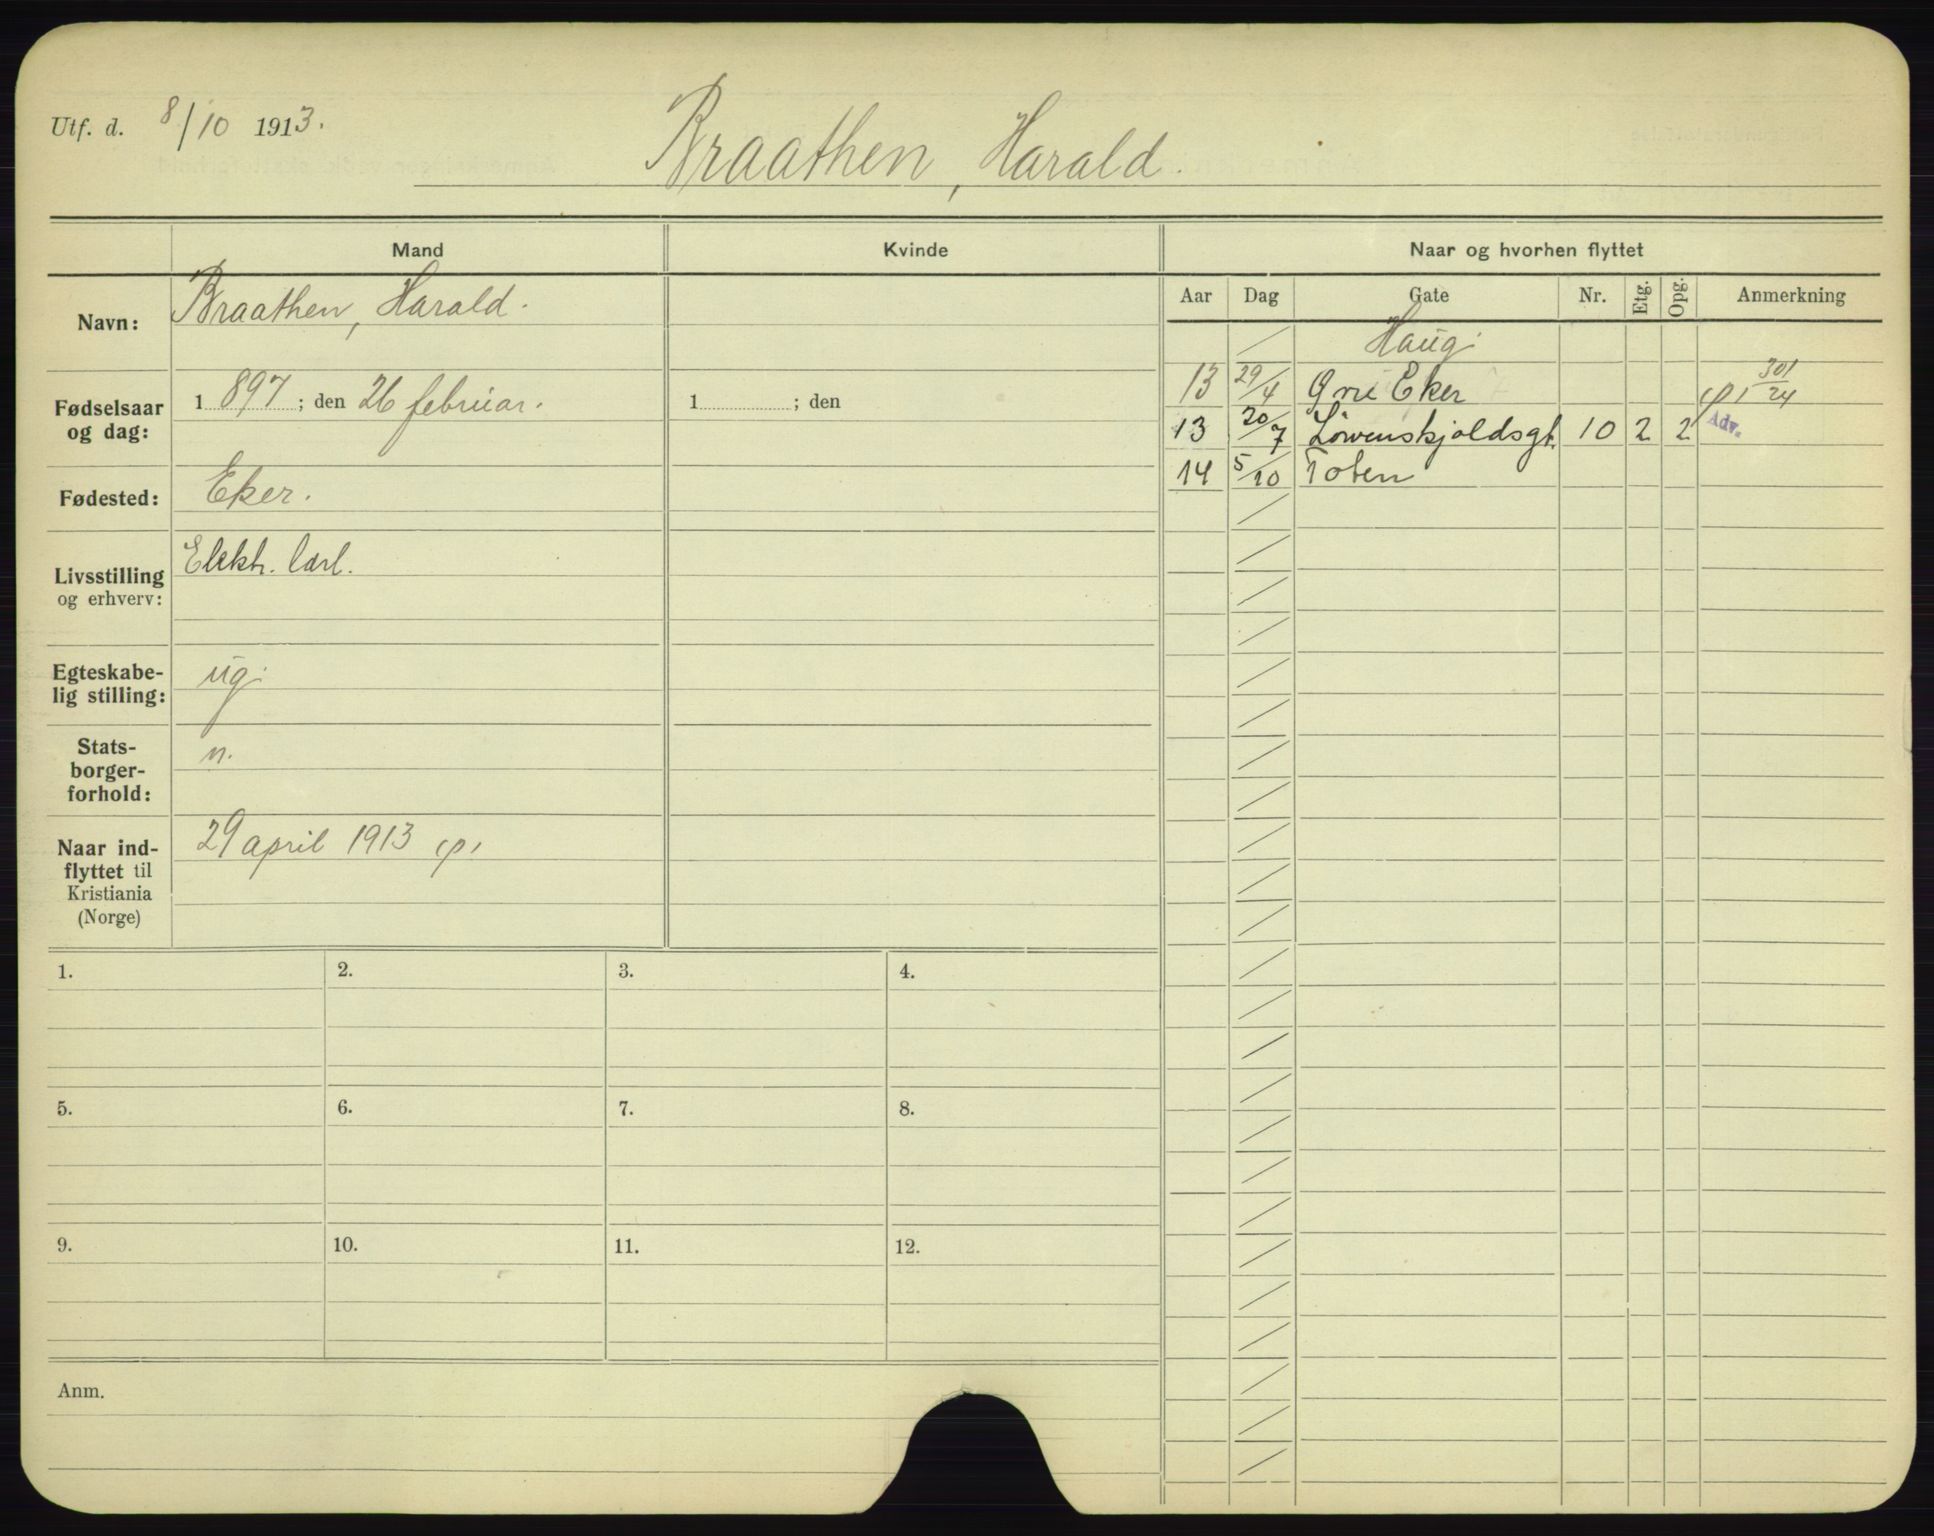 Utf. d. 8/10 1913.
Braathen, Harald.
Mand
Kvinde
Naar og hvorhen flyttet
Navn:
Braathen, Harald.
Fødselsaar og dag:
1 897 ; den 26 februar.
1 ; den
Fødested:
Eker.
Livsstilling og erhverv:
Elektr. lærl.
Egteskabe-
lig stilling:
ug.
Stats-
borger-
forhold:
n.
Naar ind-
flyttet til
Kristiania
(Norge)
29 april 1913
Aar Dag Gate Nr. Etg. Opg. Anmerkning
Haug.
13 29/4 Øvre Eker 301/24
13 20/7 Løvenskjoldsgt. 10 2 2 Adv.
14 5/10 Toten
1. 2. 3. 4.
5. 6. 7. 8.
9. 10. 11. 12.
Anm.